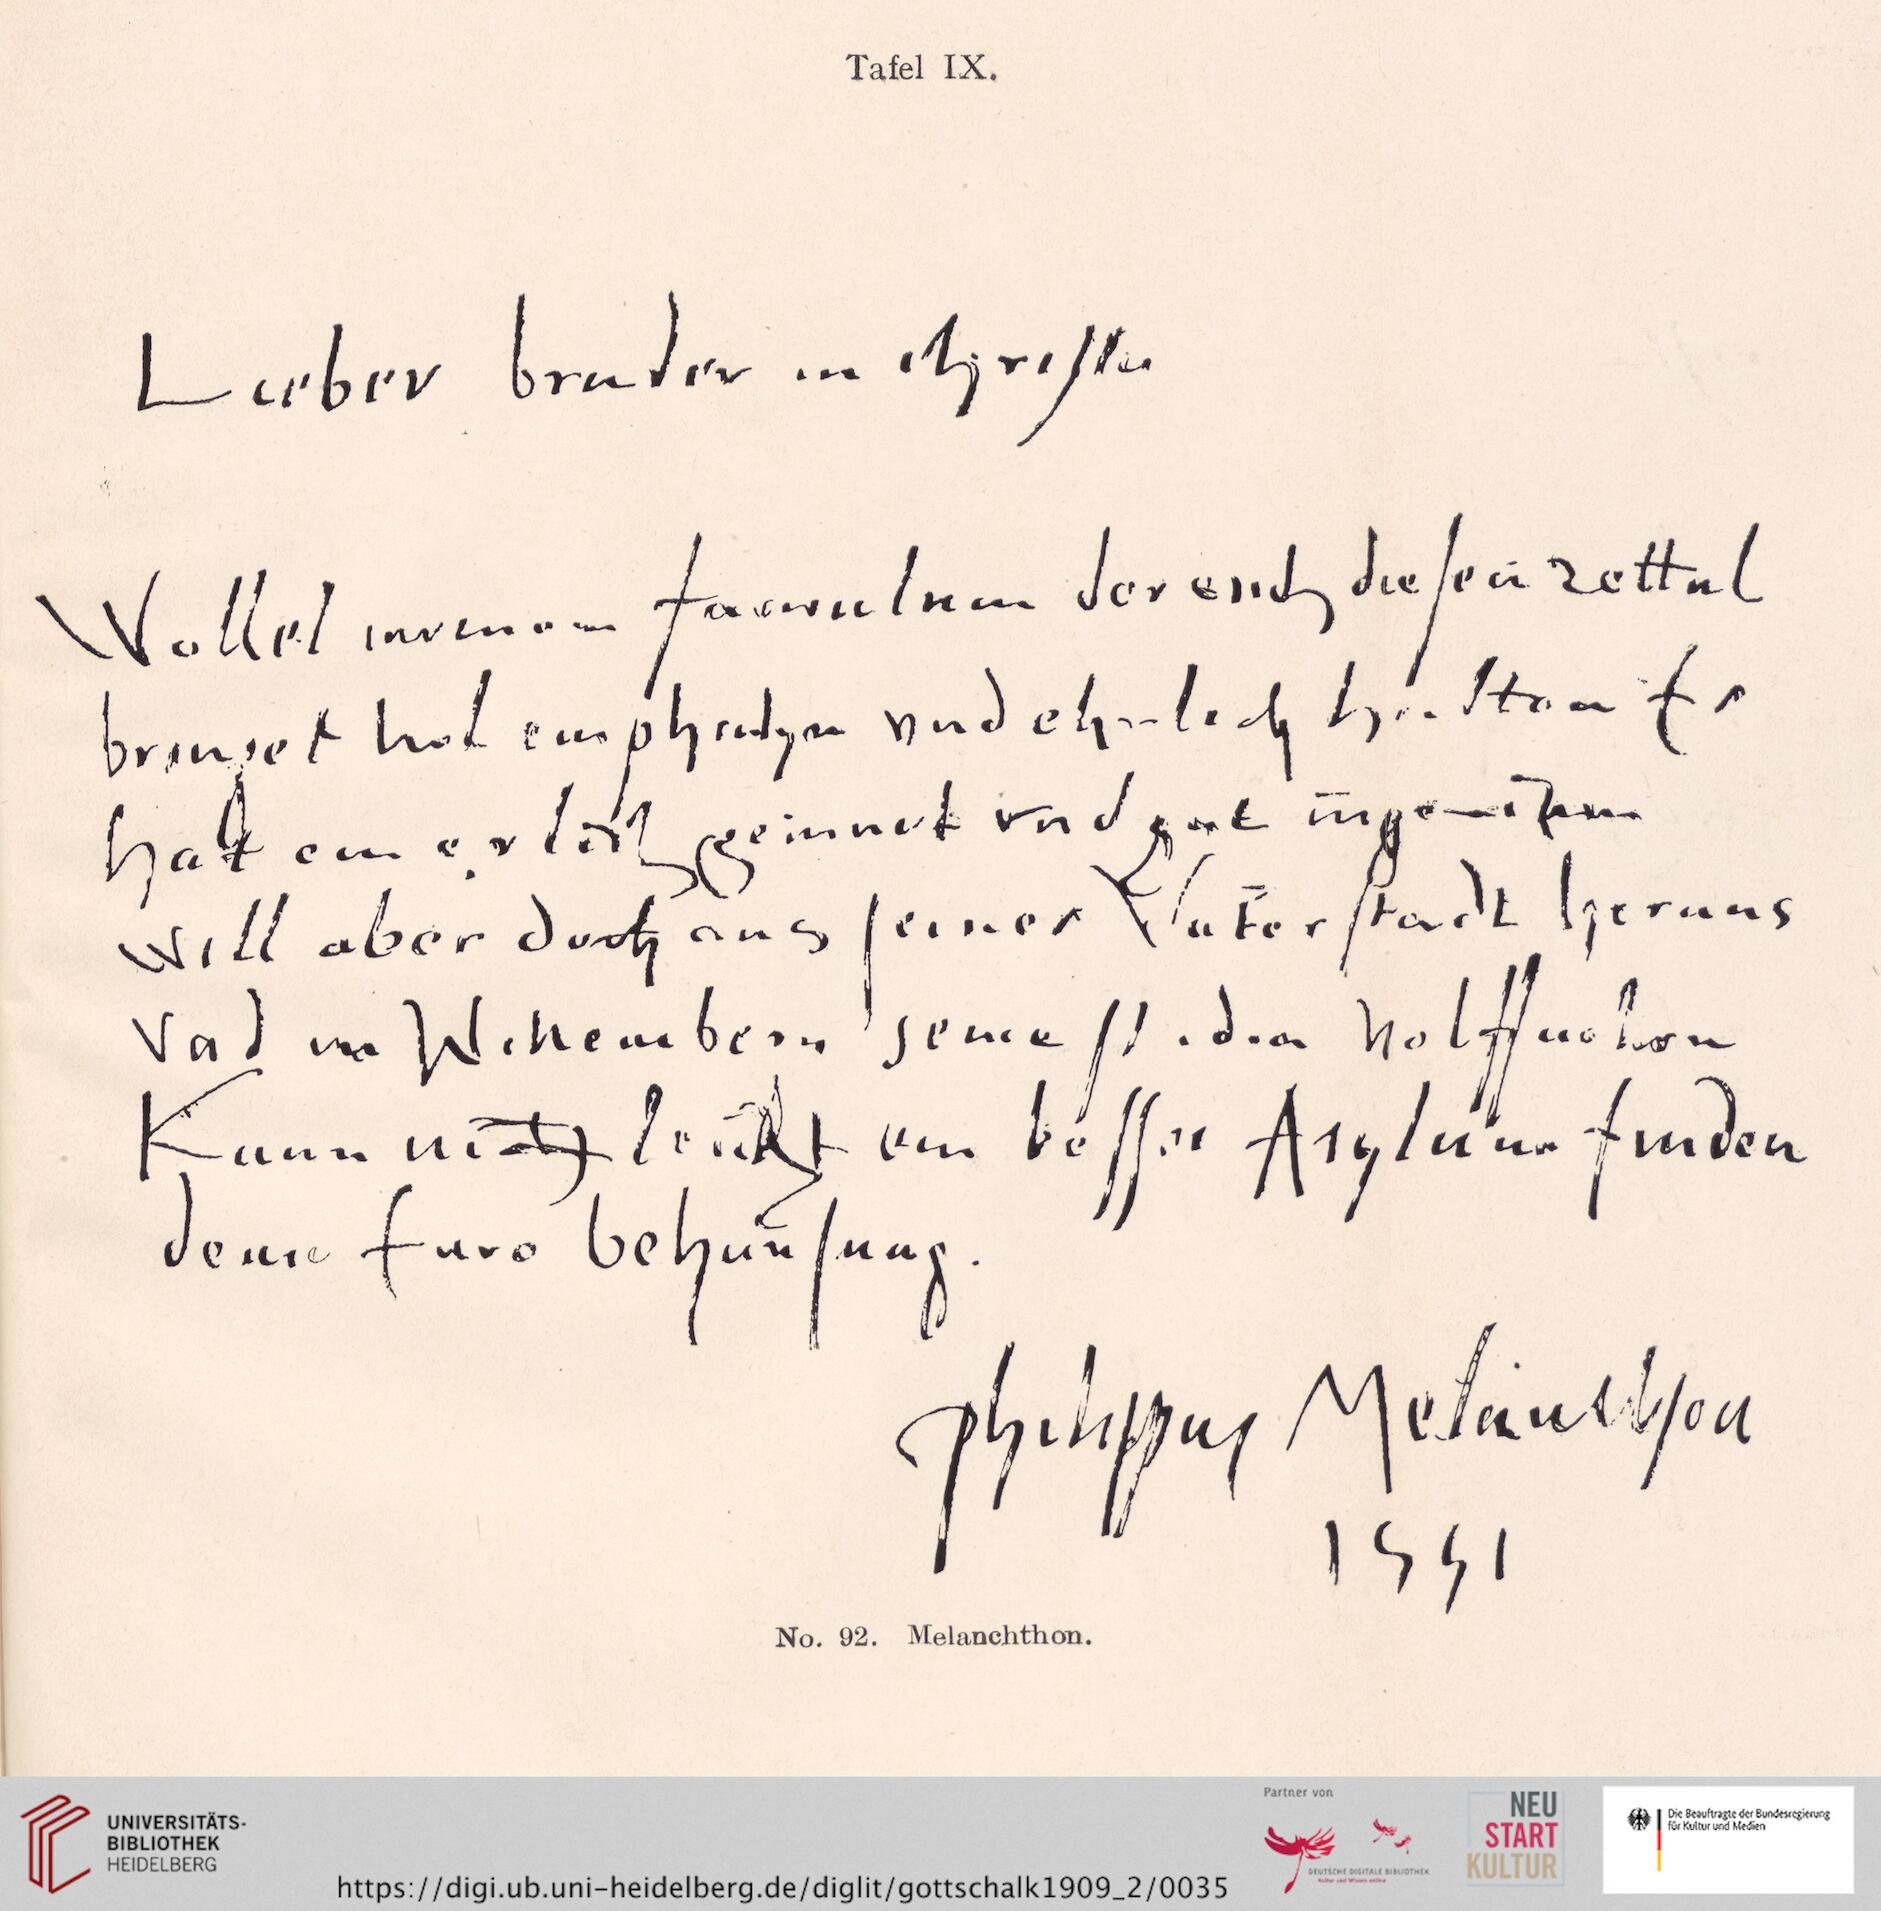 Tafel IX.
Lieber bruder in chisto
Wollet iuvenem der euch diesen zettal
bringet und ehrlich haltten Er
hatt ein erlich gemuet vnd gut ingenium
will aber doch aus seiner Vaterstadt heraus
Vnd in Wittemberg
Kann nicht leicht ein besser Asylum finden
denn Eure behausung.
Philippus Melanchthon
1551
No. 92. Melanchthon.
UNIVERSITÄTS-
BIBLIOTHEK
HEIDELBERG
https://digi.ub.uni-heidelberg.de/diglit/gottschalk1909_2/0035
Partner von
DEUTSCHE DIGITALE BIBLIOTHEK
Kultur und Wissen online
NEU
START
KULTUR
Die Beauftragte der Bundesregierung
für Kultur und Medien